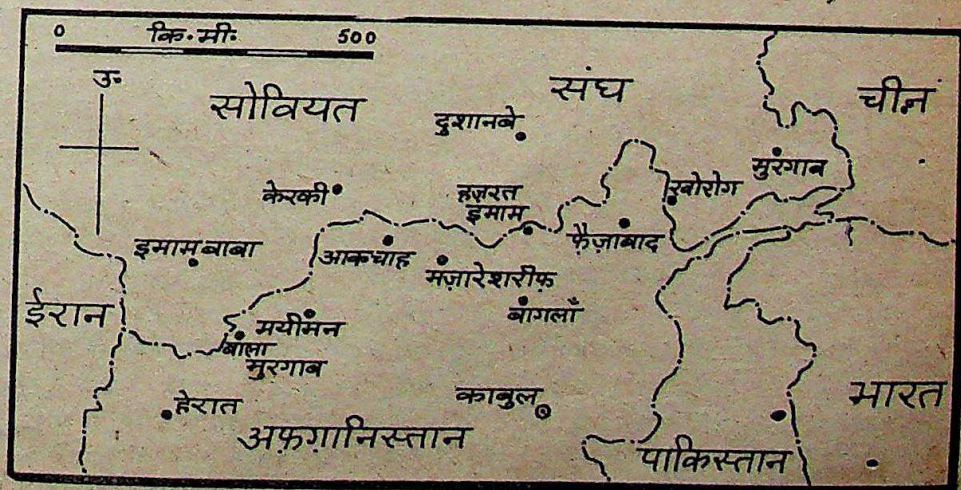 ० कि॰मी॰ ५००
उ॰
सोवियत संघ चीन
दुशानबे
मुरगाब
केरकी
हज़रत
इमाम
खोरोग
इमाम बाबा
आकचाह
फ़ैज़ाबाद
मज़ारेशरीफ़
ईरान
बागलाँ
मयीमन
बाला
मुरगाब
हेरात
काबुल
भारत
अफ़ग़ानिस्तान
पाकिस्तान